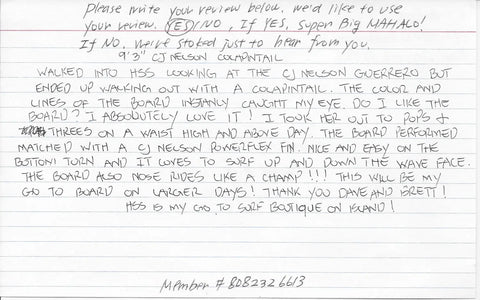 Please write your review below. We'd like to use
your review. YES/NO, If YES, Super Big MAHALO!
If NO, we're stoked just to hear from you.
9'3" CJ NELSON COLAPINTAIL
WALKED INTO HSS LOOKING AT THE CJ NELSON GUERRERO BUT
ENDED UP WALKING OUT WITH A COLAPINTAIL. THE COLOR AND
LINES OF THE BOARD INSTANLY CAUGHT MY EYE. DO I LIKE THE
BOARD? I ABSOLUTELY LOVE IT! I TOOK HER OUT TO POPS &
THREES ON A WAIST HIGH AND ABOVE DAY. THE BOARD PERFORMED
MATCHED WITH A CJ NELSON POWERFLEX FIN. NICE AND EASY ON THE
BOTTOM TURN AND IT LOVES TO SURF UP AND DOWN THE WAVE FACE.
THE BOARD ALSO NOSE RIDES LIKE A CHAMP!!! THIS WILL BE MY
GO TO BOARD ON LARGER DAYS! THANK YOU DAVE AND BRETT!
HSS IS MY GO TO SURF BOUTIQUE ON ISLAND!
Member # 8082326613